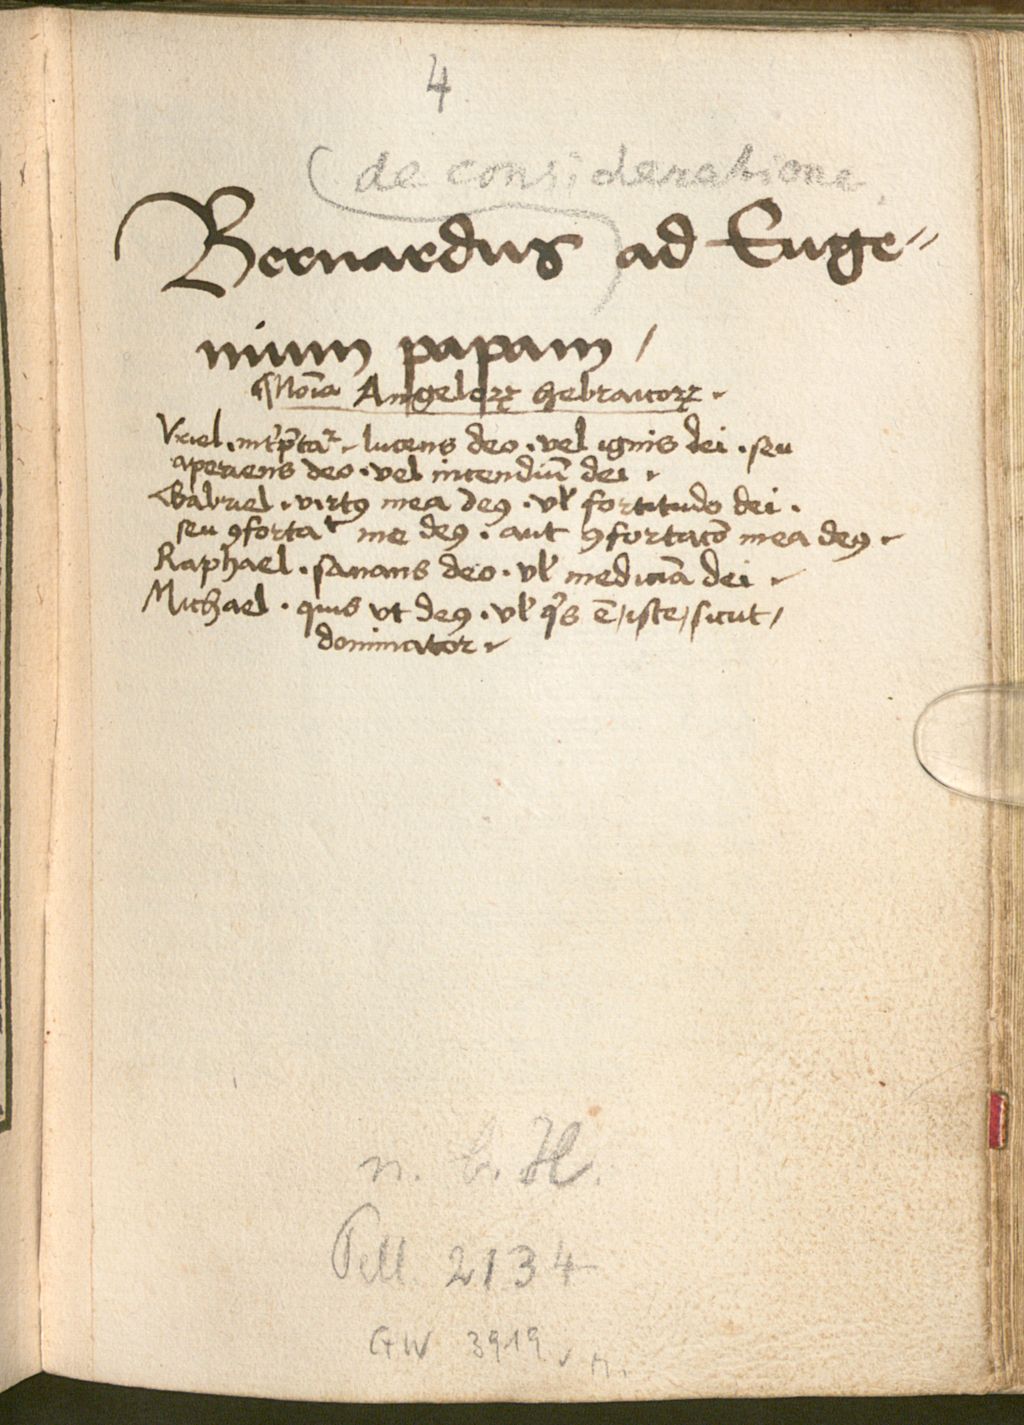 4
(de consideratione
Bernardus) ad Euge=
nium papam /
Noı̄a Angeloꝝ hebraicoꝝ .
Vriel . int̄p̄tat᷑ . lucens deo . vel ignis dei . seu
aperiens deo . vel incendiū dei .
Gabriel . virtꝰ mea deꝰ . vl̓ fortitudo dei .
seu ꝯfortat᷑ me deꝰ . aut ꝯfortaco᷑ mea deꝰ .
Raphael . sanans deo . vl̓ medicı̄a dei .
Michael . quis vt deꝰ . vl̓ q̓s ē / iste / sicut /
dominator .
n. b. H.
Pell 2134
GW 3919